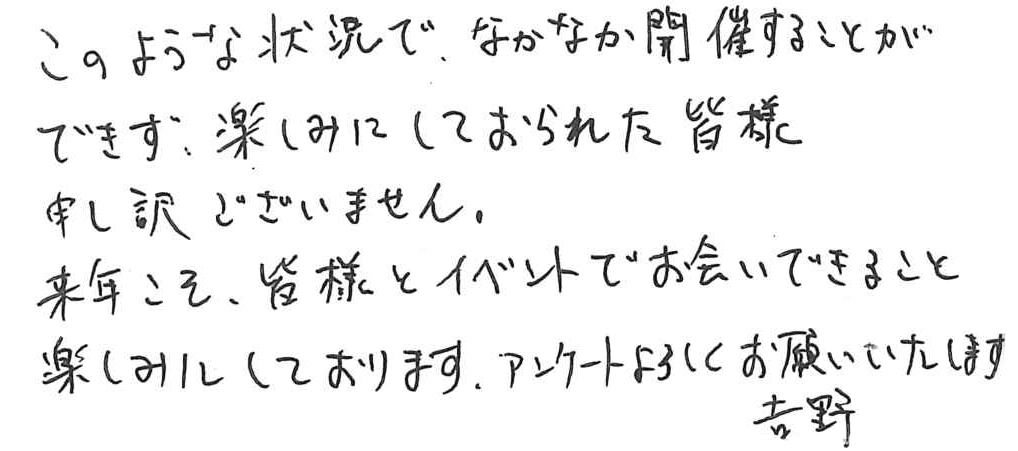 このような状況で、なかなか開催することが
できず、楽しみにしておられた皆様
申し訳ございません。
来年こそ、皆様とイベントでお会いできること
楽しみにしております。アンケートよろしくお願いいたします
吉野